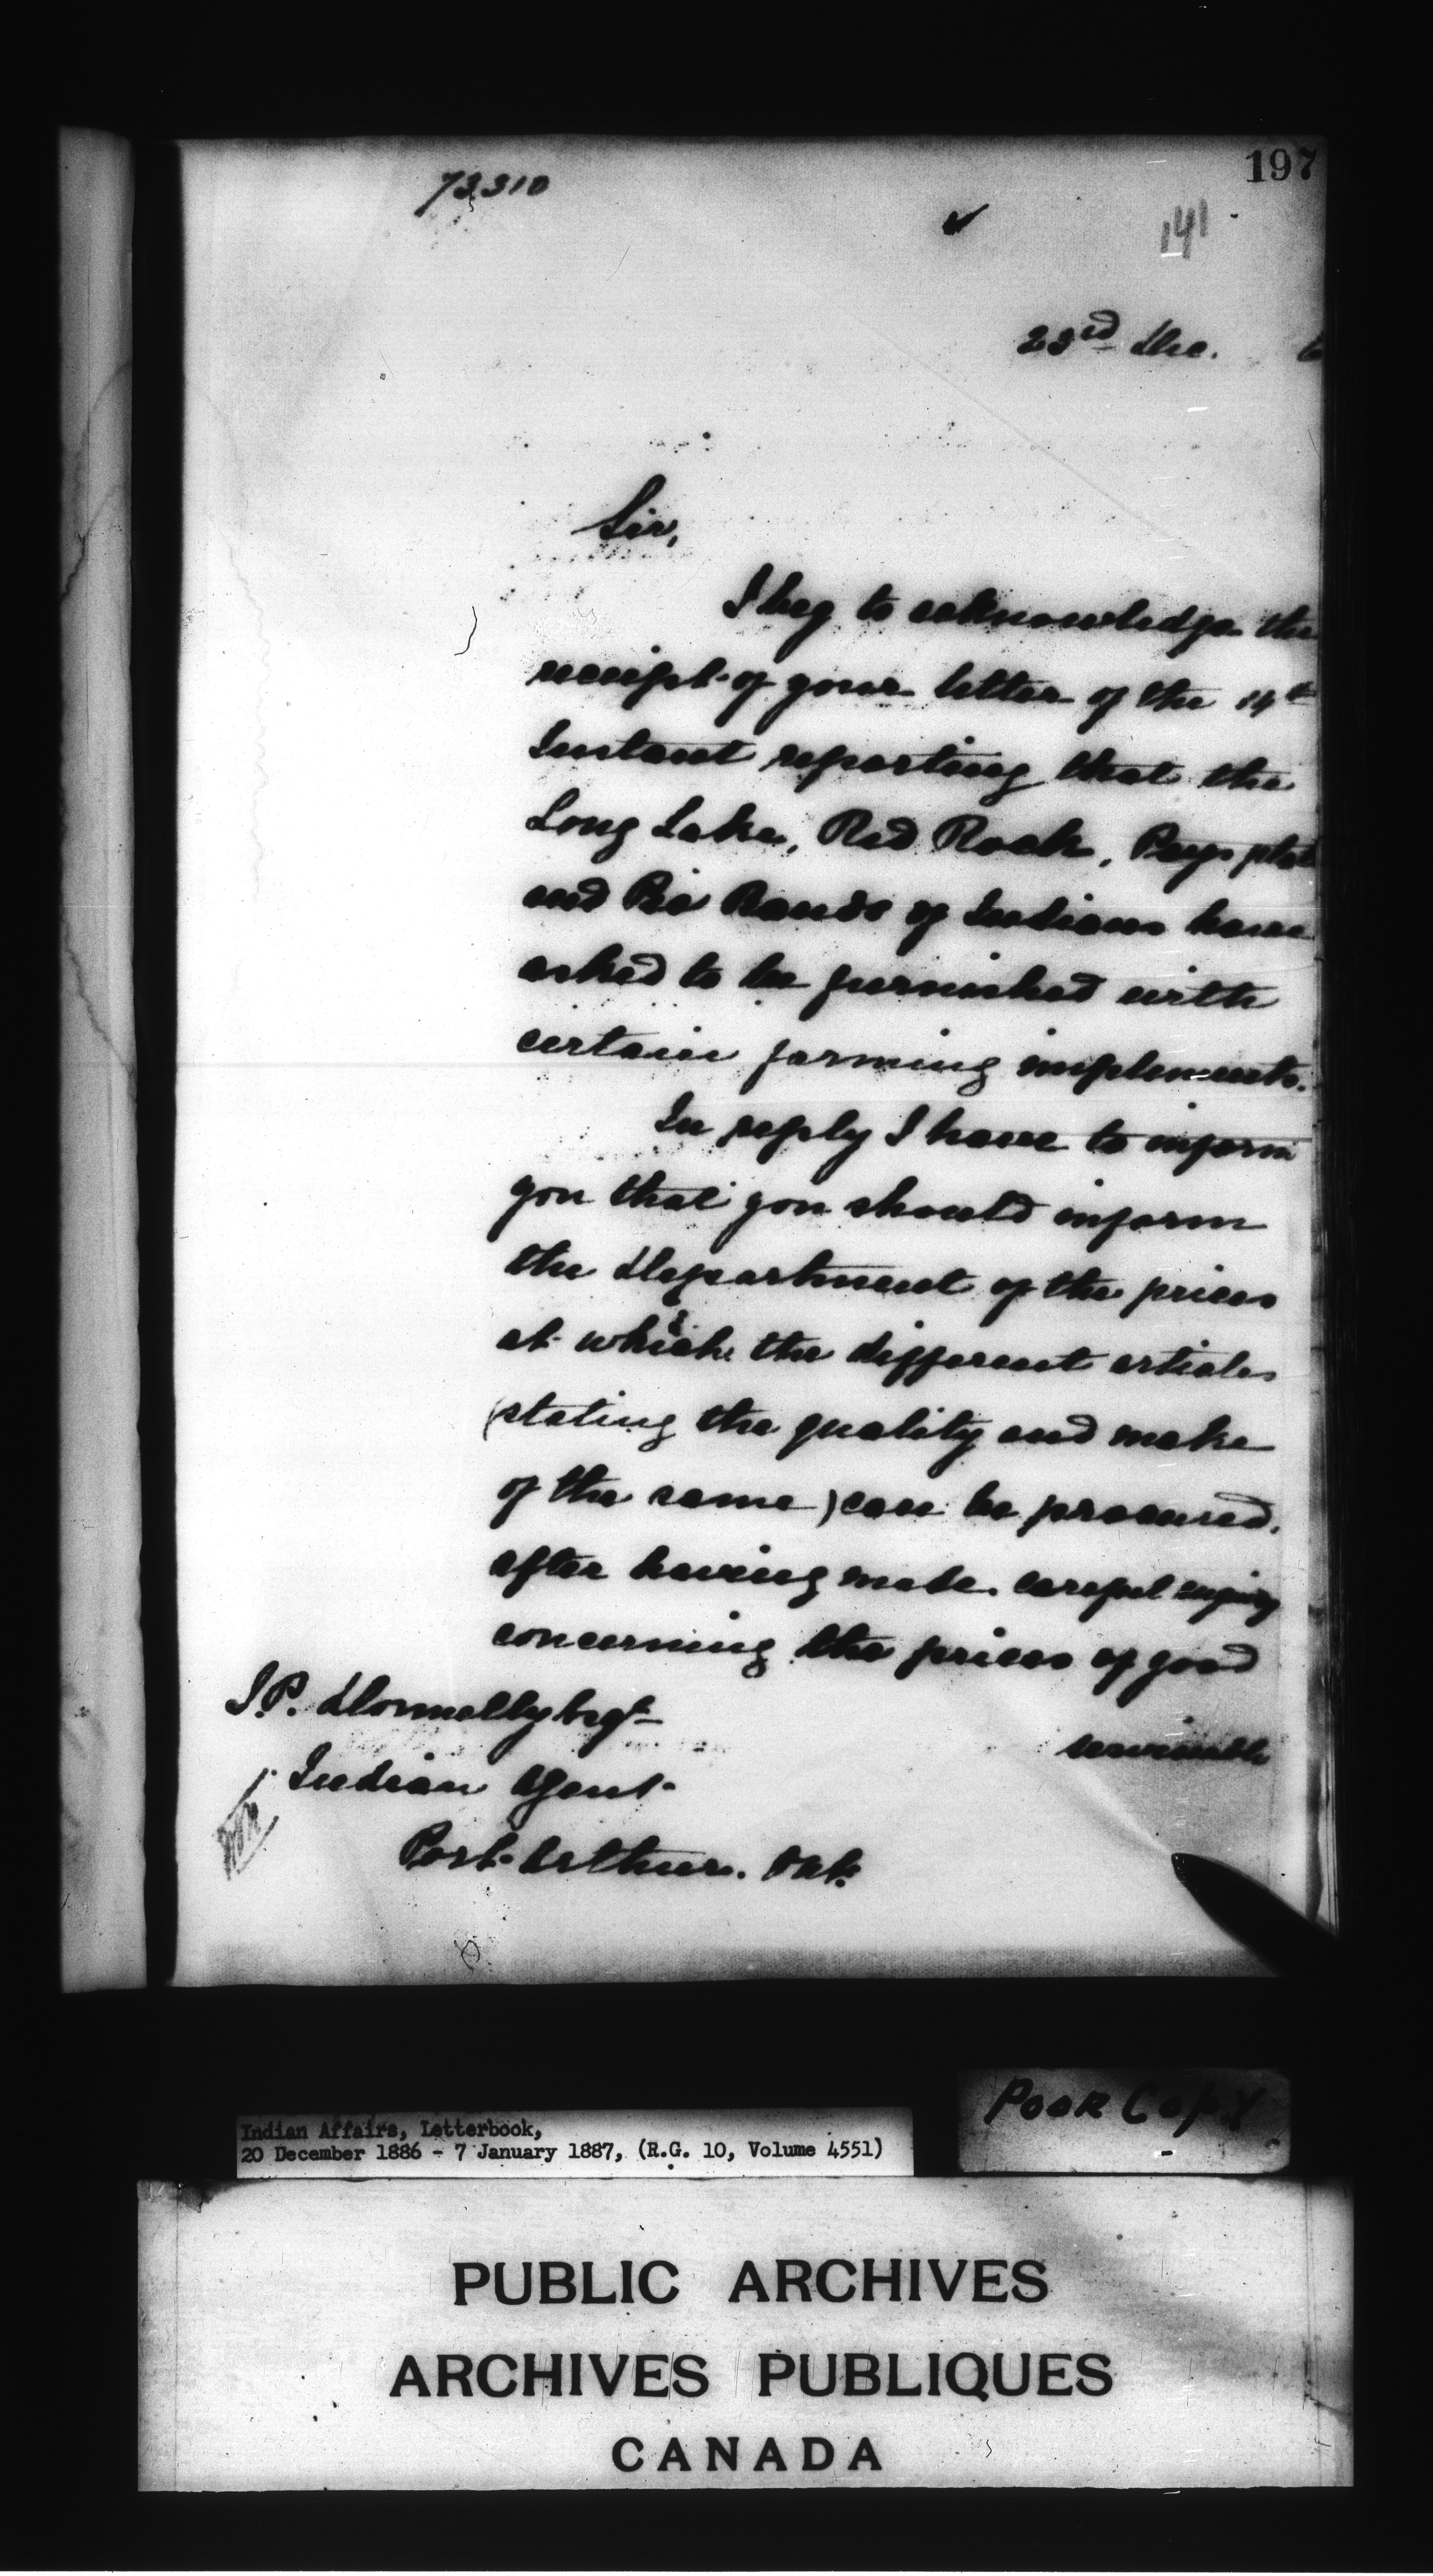 73310
197
141
23rd Dec. 6
Sir,
I beg to acknowledge the
receipt of your letter of the 14th
Instant reporting that the
Long Lake, Red Rock, Pays plat
and Pic Bands of Indians have
asked to be furnished with
certain farming implements.
In reply I have to inform
you that you should inform
the Department of the prices
at which the different articles
(stating the quality and make
of the same) can be procured,
after having made careful enquiry
concerning the prices of good
serviceable
J.P. Donnelly Esqr
Indian Agent
Port Arthur. Ont.
POOR COPY
Indian Affairs, Letterbook,
20 December 1886 - 7 January 1887, (R.G. 10, Volume 4551)
PUBLIC ARCHIVES
ARCHIVES PUBLIQUES
CANADA